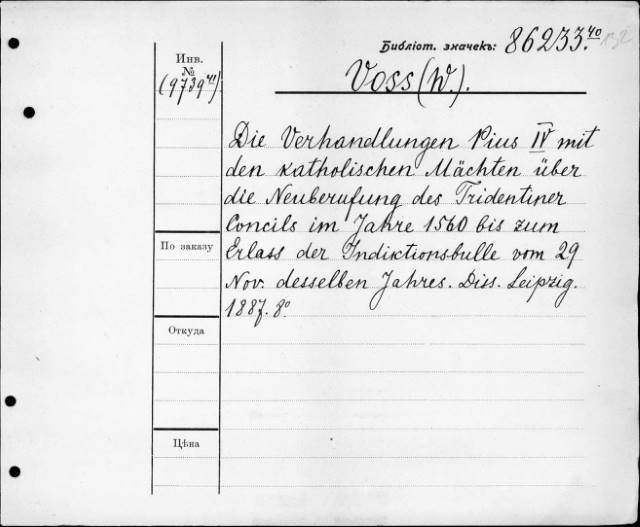 Библіот. значекъ: 86233.⁴⁰
Инв.
№
(9739⁴¹)
Voss (W.).
Die Verhandlungen Pius IV mit
den katholischen Mächten über
die Neuberufung des Tridentiner
Concils im Jahre 1560 bis zum
Erlass der Indiktionsbulle vom 29
Nov. desselben Jahres. Diss. Leipzig.
1887. 8°
По заказу
Откуда
Цѣна